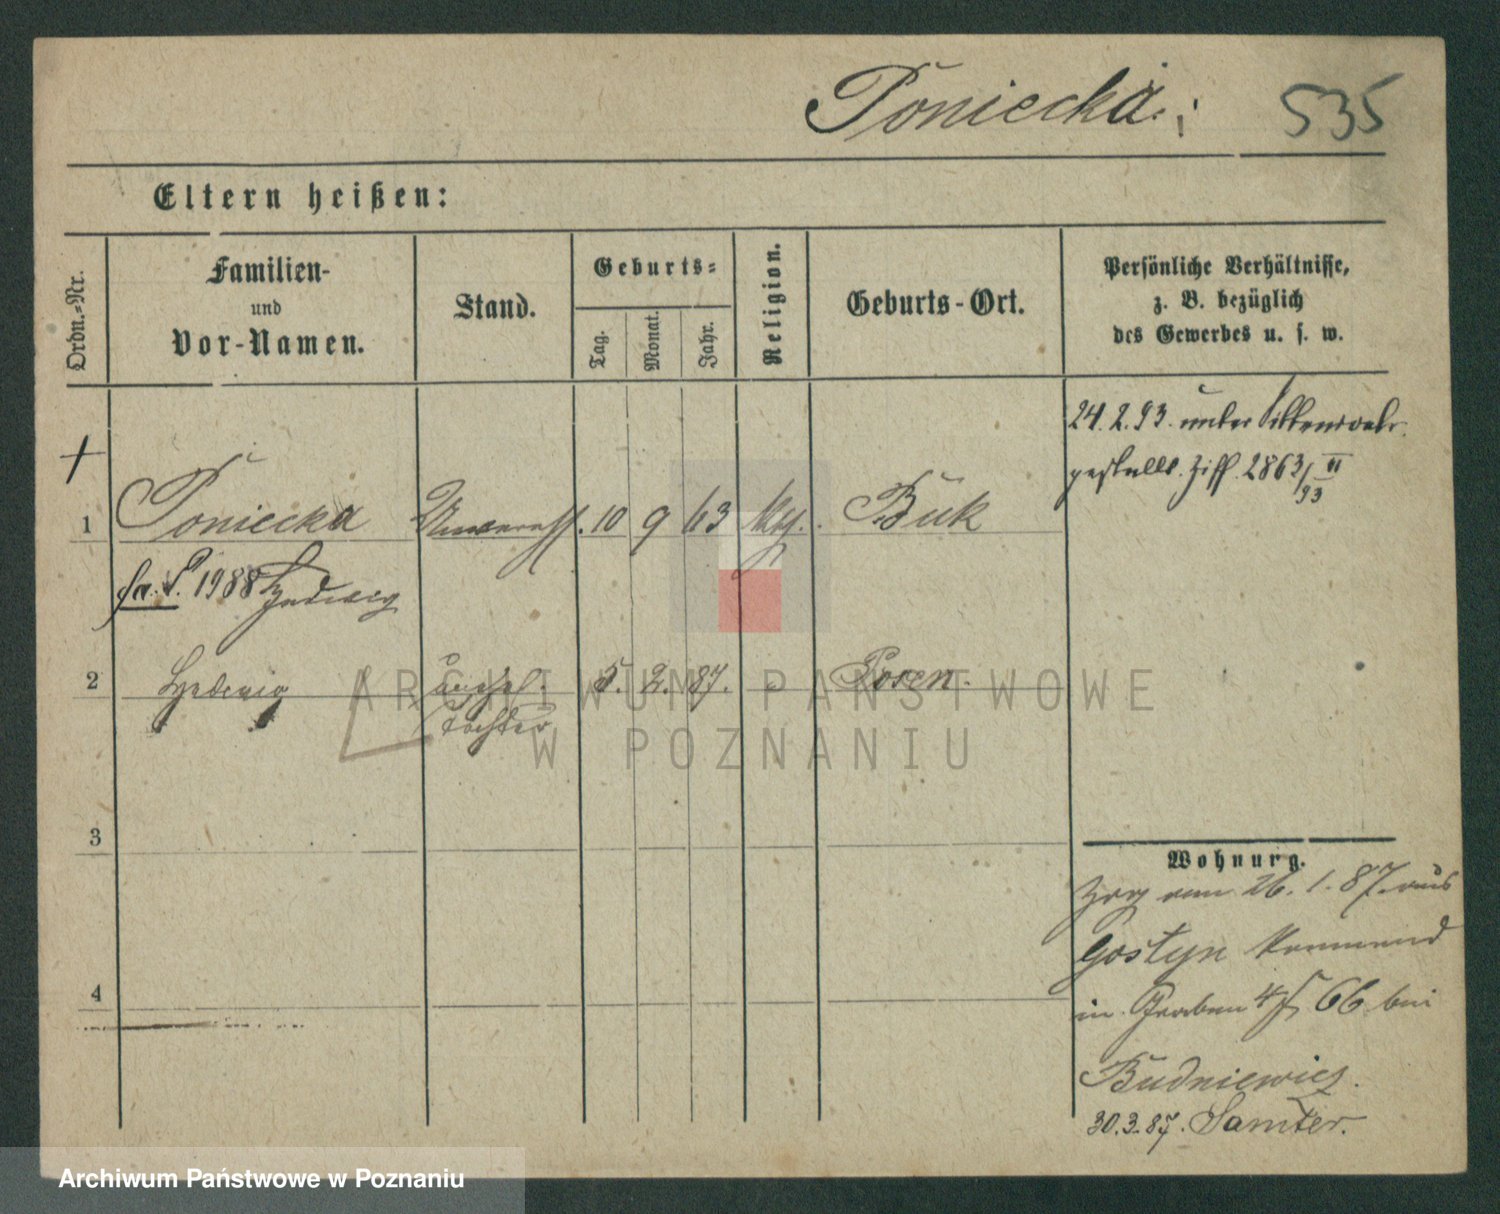 Poniecka. 535
Eltern heißen:
Ordn.-Nr.
Familien-
und
Vor-Namen.
Stand.
Geburts-
Tag.
Monat.
Jahr.
Religion.
Geburts-Ort.
Persönliche Verhältnisse,
z. B. bezüglich
des Gewerbes u. s. w.
24.2.93. unter Sittencontr.
gestellt. Ziff. 2863/II 93
1 Poniecka Unvereh. 10 9 63 Buk
1988 Hedwig
2 Hedwig unehel. 5. 2. 87. Posen.
Tochter
3
4
Wohnung.
Zzg vom 26.1.87. aus
Gostyn kommend
in Graben 4 66 bei
Budniewicz.
30.3.87. Samter.
ARCHIWUM PAŃSTWOWE
W POZNANIU
Archiwum Państwowe w Poznaniu